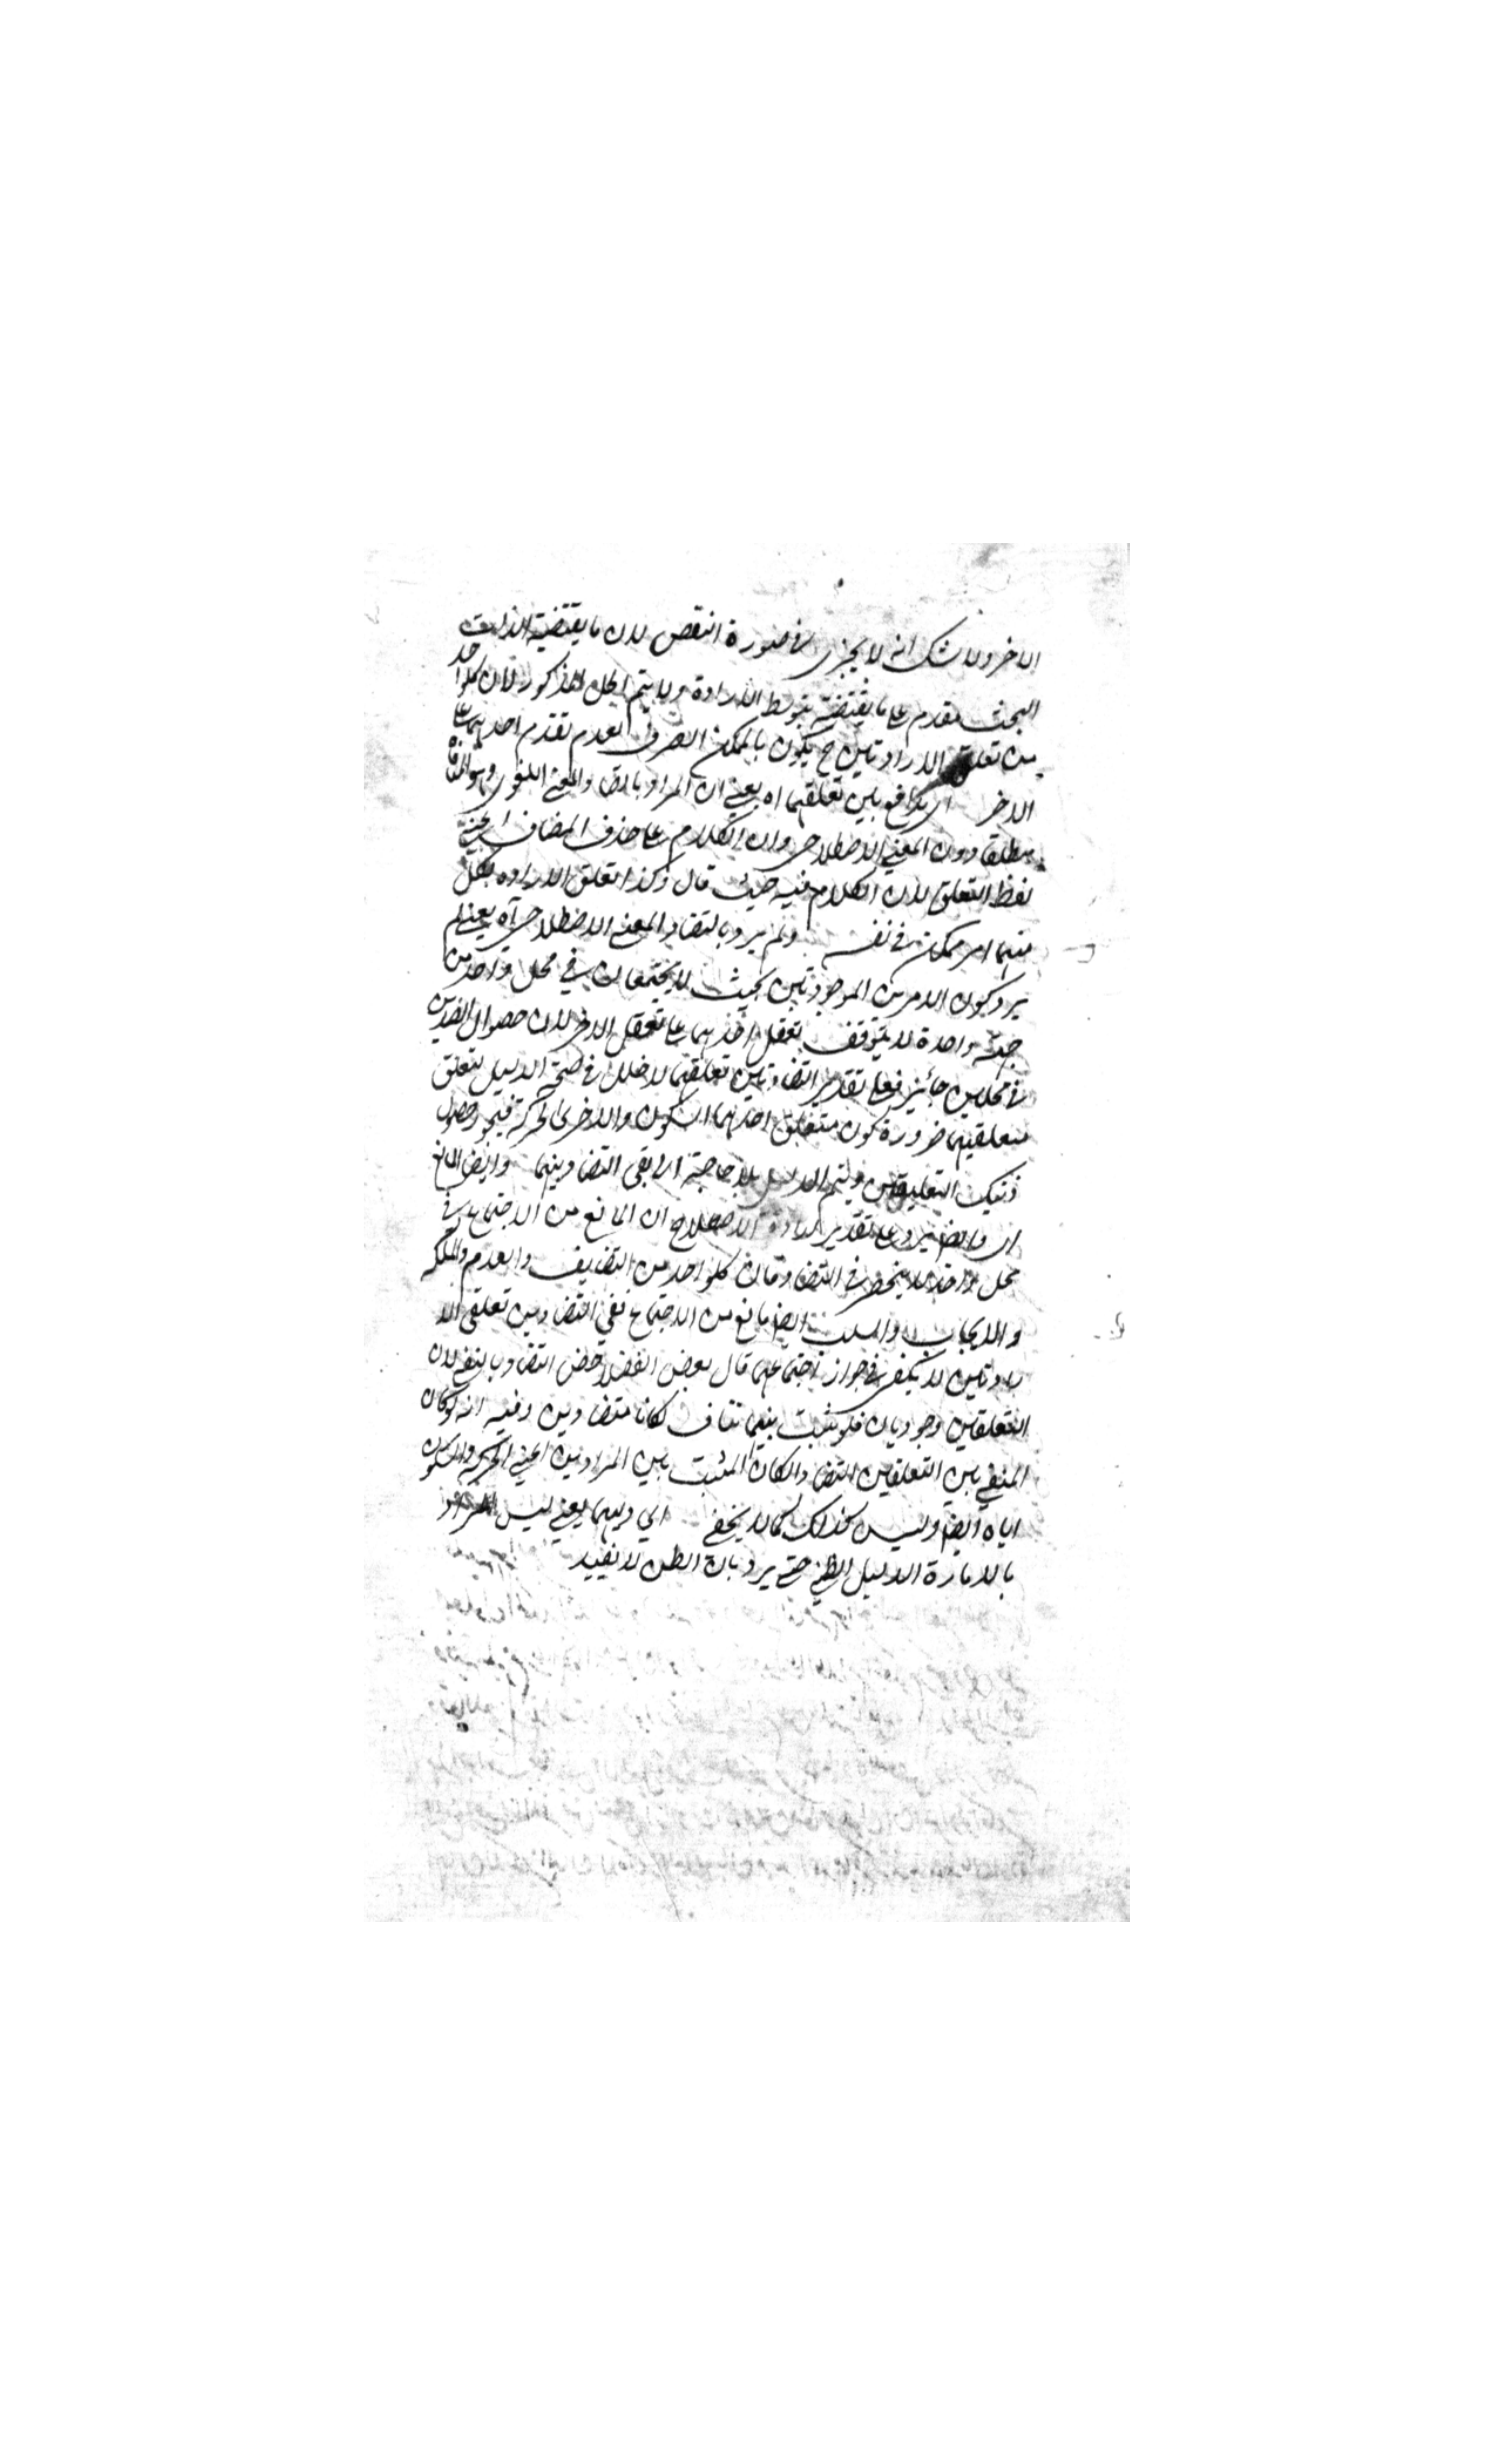 الاخر ولا شك انه لا يجزى فى صورة النقص لان ما يقتضيه الذات
البحث مقدم على ما يقتضيه بتوسط الارادة ولا يتم الحل المذكور لان كلواحد
من تعلق الارادتين ح يكون بالممكن الصرف لعدم تقدم احدهما على
الاخر اى تدافع بين تعلقهما اه يعنى ان المراد بالتضاد المعنى اللغوى وهو المنافاة
مطلقا دون المعنى الاصطلاحى وان الكلام على حذف المضاف اعنى
لفظ التعلق لان الكلام فيه حيث قال وكذا تعلق الارادة بكل
منهما امر ممكن فى نفسه ولم يرد بالتضاد المعنى الاصطلاحى آه يعنى لم
يرد كون الامرين الموجودتين بحيث لا يجتمعان فى محل واحد من
جهة واحدة لا يتوقف تعقل احدهما على تعقل الاخر لان حصول الضدين
فى محلين جائز فعلى تقدير التضاد بين تعلقهما لاخلل فى صحة الدليل لتعلق
متعلقيهما ضرورة كون متعلق احدهما السكون والاخرى الحركة فيجوز حصول
ذنيك التعليقين ويتم الدليل بلا حاجة الى نفى التضاد بينهما وايضا المانع
اى وايضا يرد على تقدير ارادة الاصطلاح ان المانع من الاجتماع فى
محل واحد لا ينحصر فى التضاد فان كلواحد من التضايف والعدم والملكة
والايجاب والسلب ايضا مانع من الاجتماع نفى التضاد بين تعلقى الا
رادتين لا يكفى فى جواز اجتماعهما قال بعض الفضلا خص التضاد بالنفى لان
التعلقين وجوديان فلو ثبت بينهما تناف لكانا متضادين وفيه انه لو كان
المنفى بين التعلقين التضاد لكان المثبت بين المرادين اعنى الحركة والسكون
اياه ايضا وليس كذلك كما لا يخفى اى دليهما يعنى ليس المراد
بالامارة الدليل الظنى حتى يرد بان الظن لا نفيد